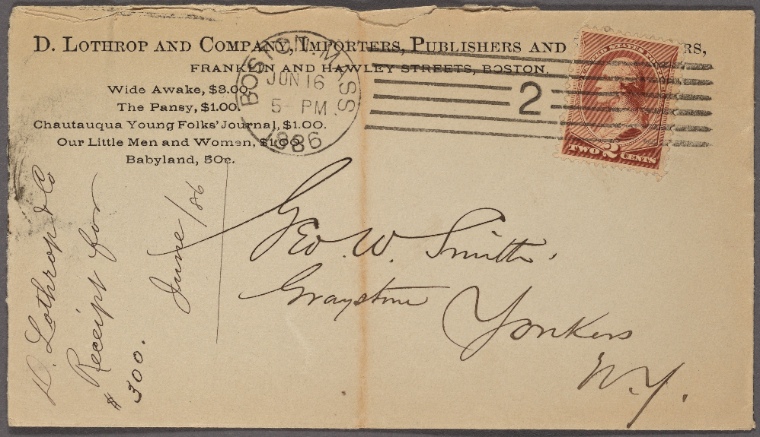 D. Lothrop and Company, Importers, Publishers and
Franklin and Hawley Streets, Boston.
Wide Awake, $3.00.
The Pansy, $1.00.
Chautauqua Young Folks' Journal, $1.00.
Our Little Men and Women, $1.00.
Babyland, 50c.
BOSTON. MASS
JUN 16
5 - PM
1886
2
UNITED STATES
TWO 2 CENTS
Geo. W. Smith,
Graystone
Yonkers
N.Y.
D. Lothrop & Co
Receipt for
$300.
June/86